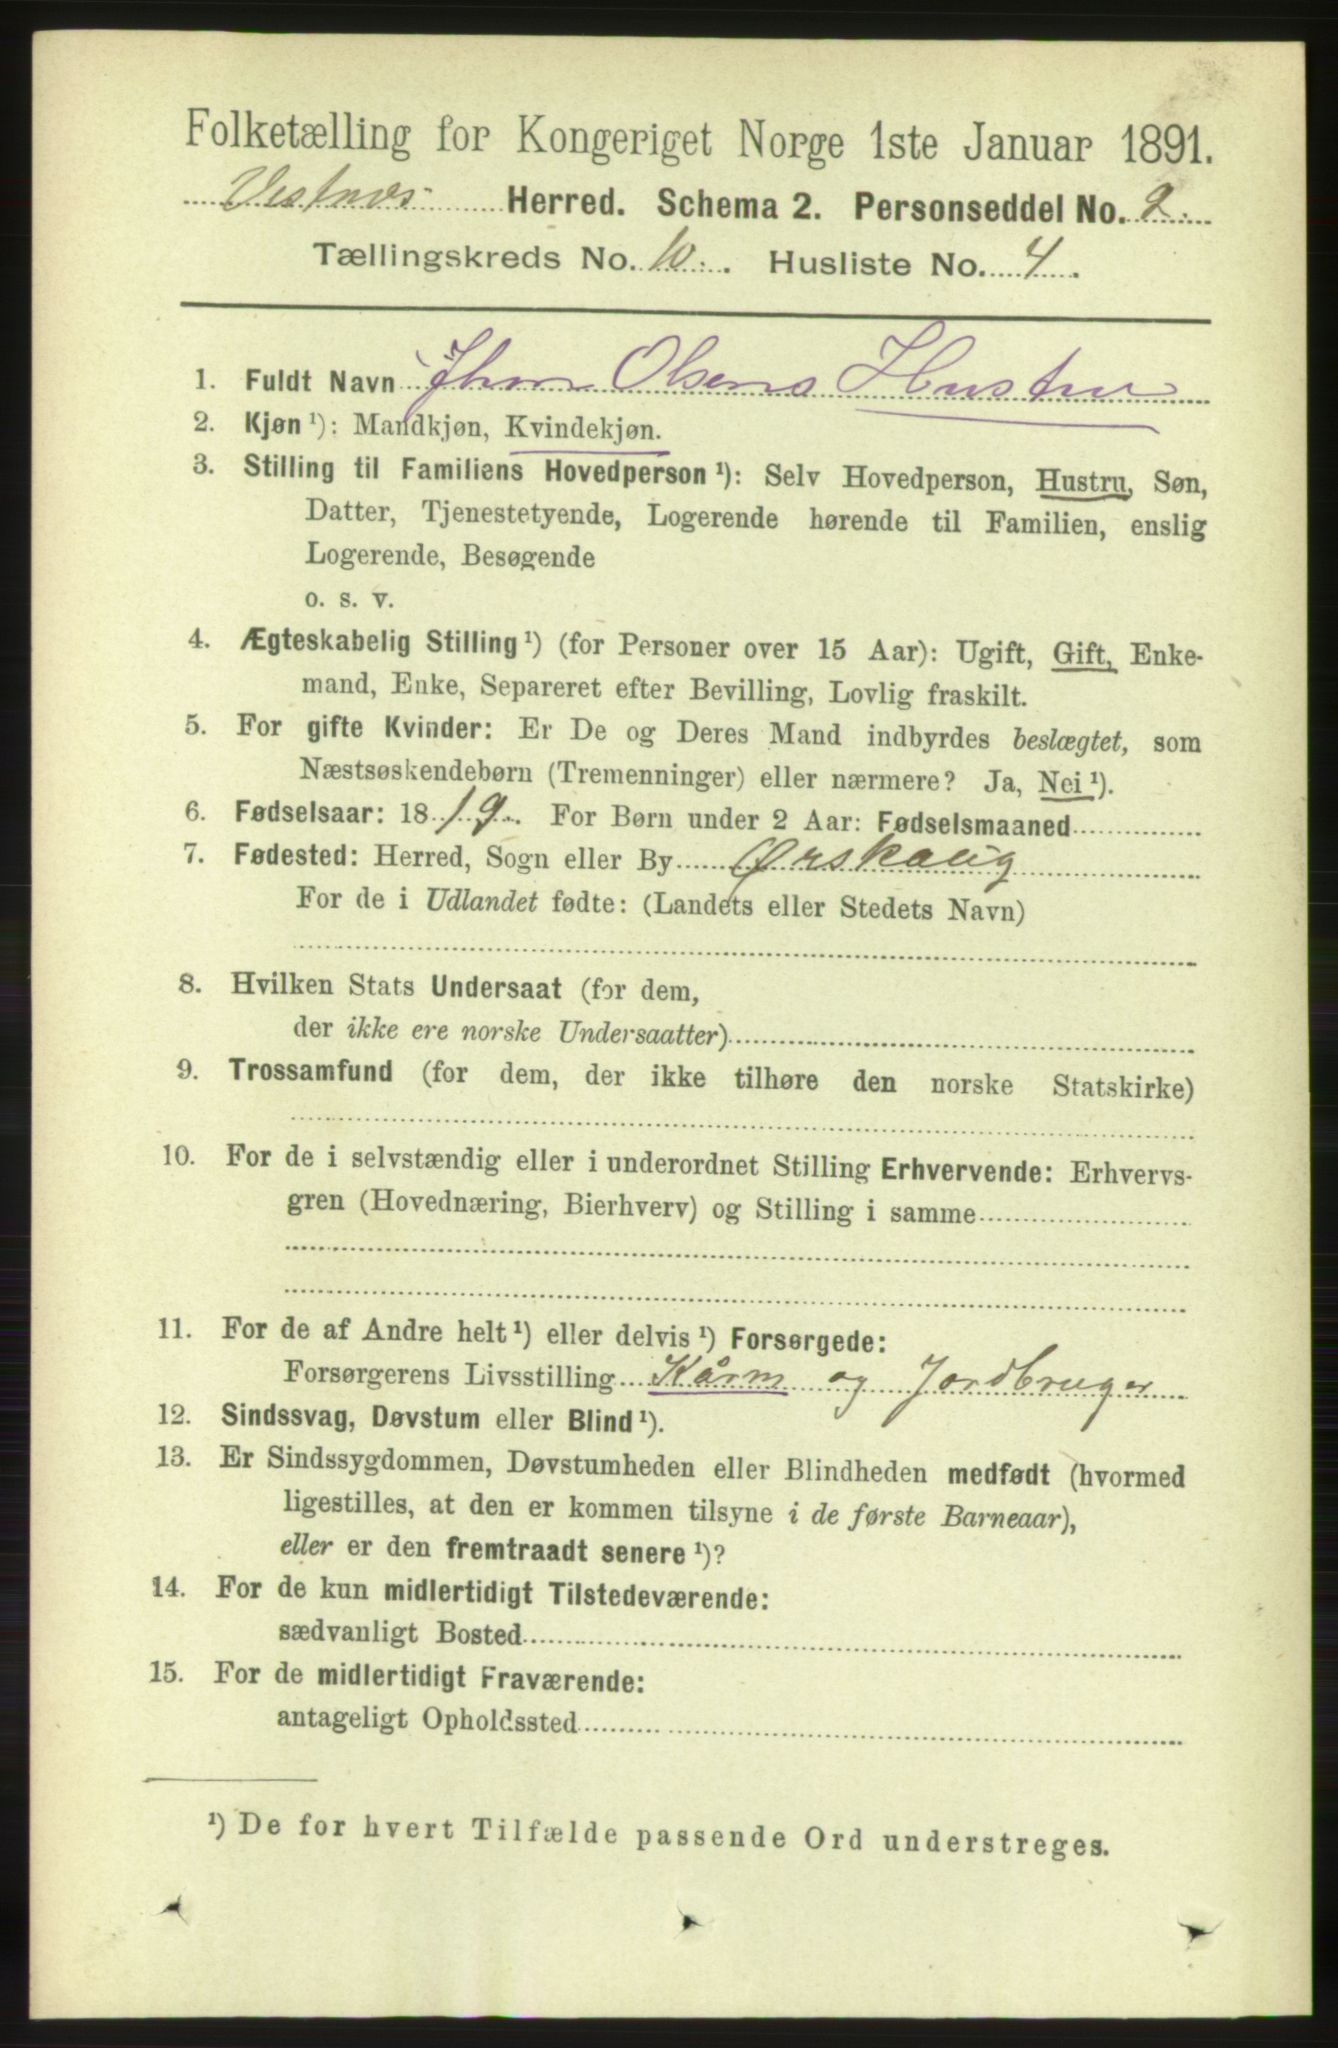 Folketælling for Kongeriget Norge 1ste Januar 1891.
Vestnes Herred. Schema 2. Personseddel No. 2.
Tællingskreds No. 10. Husliste No. 4.
1. Fuldt Navn Jhon Olsens Hustru
2. Kjøn ¹): Mandkjøn, Kvindekjøn.
3. Stilling til Familiens Hovedperson ¹): Selv Hovedperson, Hustru, Søn,
Datter, Tjenestetyende, Logerende hørende til Familien, enslig
Logerende, Besøgende
o. s. v.
4. Ægteskabelig Stilling ¹) (for Personer over 15 Aar): Ugift, Gift, Enke-
mand, Enke, Separeret efter Bevilling, Lovlig fraskilt.
5. For gifte Kvinder: Er De og Deres Mand indbyrdes beslægtet, som
Næstsøskendebørn (Tremenninger) eller nærmere? Ja, Nei ¹).
6. Fødselsaar: 1819. For Børn under 2 Aar: Fødselsmaaned
7. Fødested: Herred, Sogn eller By Ørskoug
For de i Udlandet fødte: (Landets eller Stedets Navn)
8. Hvilken Stats Undersaat (for dem,
der ikke ere norske Undersaatter)
9. Trossamfund (for dem, der ikke tilhøre den norske Statskirke)
10. For de i selvstændig eller i underordnet Stilling Erhvervende: Erhvervs-
gren (Hovednæring, Bierhverv) og Stilling i samme
11. For de af Andre helt ¹) eller delvis ¹) Forsørgede:
Forsørgerens Livsstilling Kårm og Jordbruger
12. Sindssvag, Døvstum eller Blind ¹).
13. Er Sindssygdommen, Døvstumheden eller Blindheden medfødt (hvormed
ligestilles, at den er kommen tilsyne i de første Barneaar),
eller er den fremtraadt senere ¹)?
14. For de kun midlertidigt Tilstedeværende:
sædvanligt Bosted
15. For de midlertidigt Fraværende:
antageligt Opholdssted
¹) De for hvert Tilfælde passende Ord understreges.